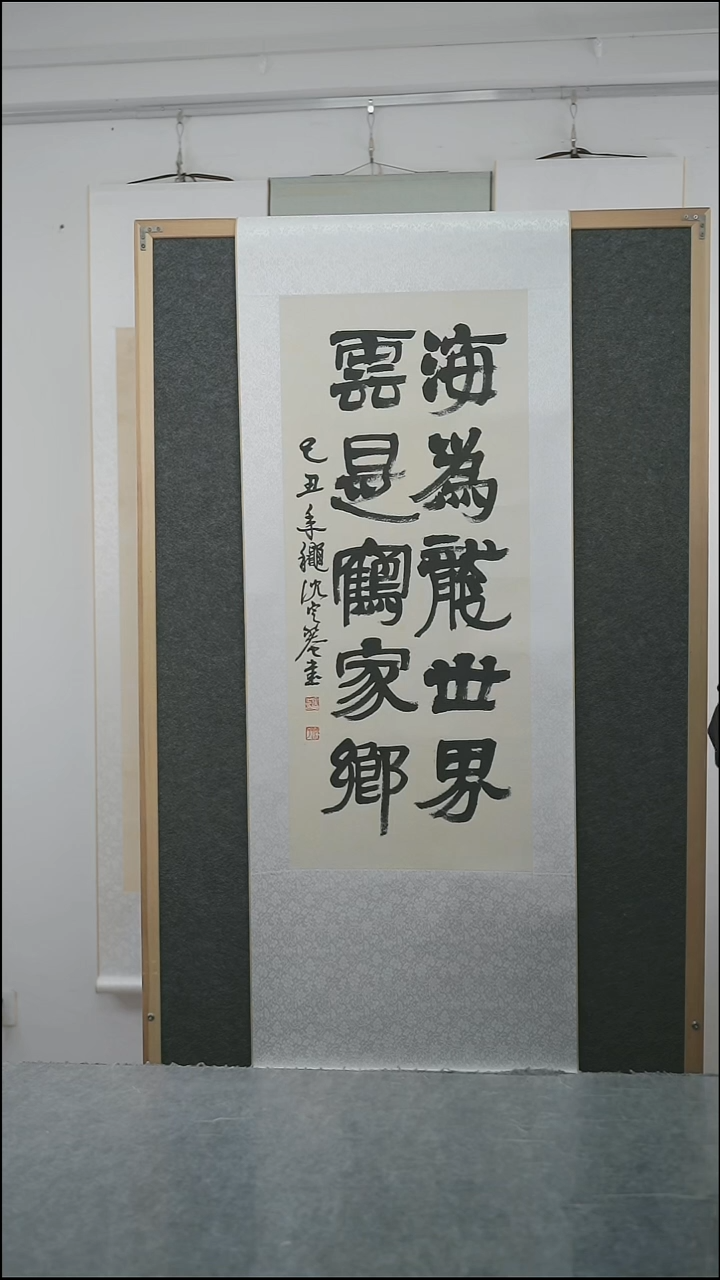 海為龍世界
雲是鶴家鄉
己丑年穐沈定菴書